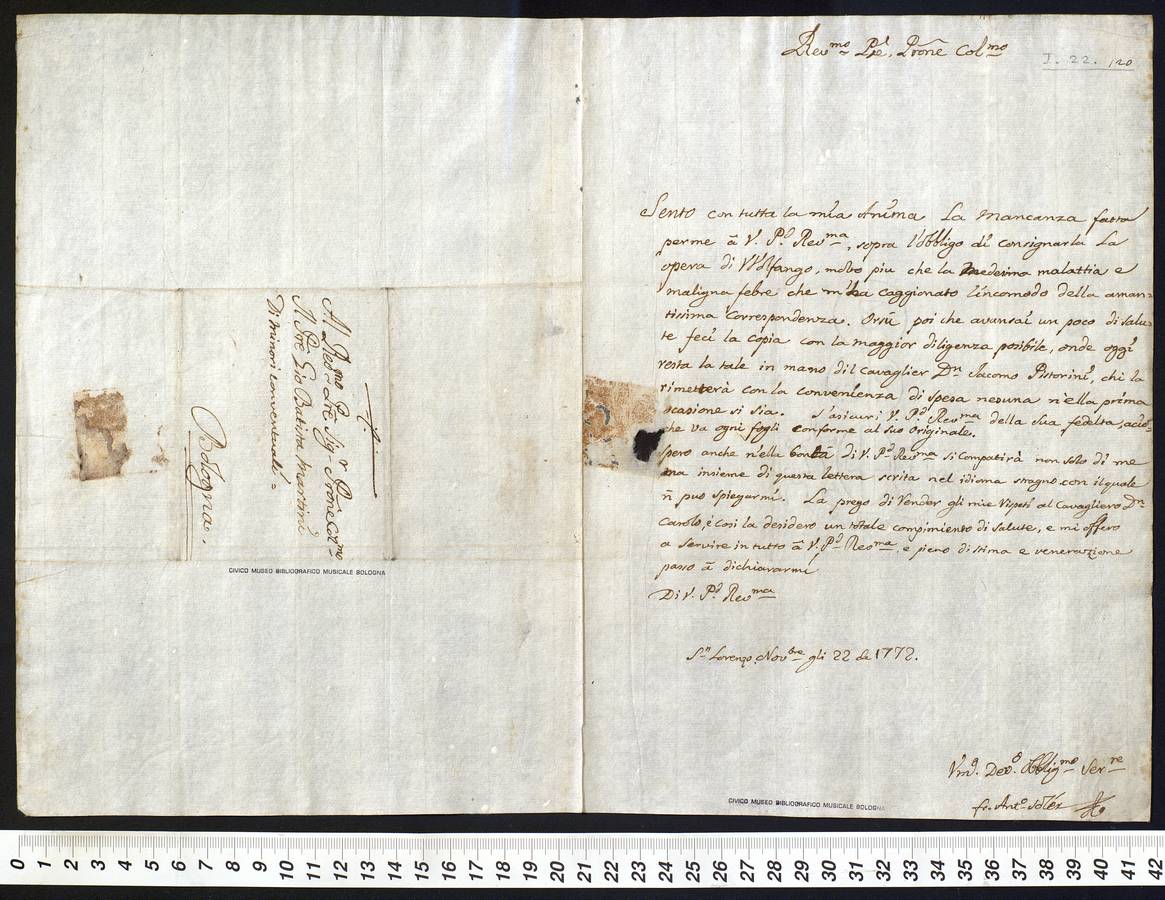 Al Red.mo Pre Sig.r Prone Col.mo
Il Pre Gio Batista Martini
Di minori conventuali =
Bologna.
CIVICO MUSEO BIBLIOGRAFICO MUSICALE BOLOGNA
Rev.mo Pre, Prone Col.mo
I. 22. 120
Sento con tutta la mia Anima La Mancanza fatta
per me â V. P.d Rev.ma, sopra l'obbligo di consignarla La
opera di Wolfango, molto piu che la medesima malattia e
maligna febre che m'ha caggionato l'incomodo della aman-
tissima Correspondenza. Orsù poi che avansai un poco di salu-
te feci la copia con la maggior diligenza posibile, onde oggi
resta la tale in mano dil Cavaglier D.n Jacomo Pistorini, chi la
rimetterà con la convenienza di spesa nesuna n'ella prima
ocasione si sia. S'asicuri V. P.d Rev.ma della Sua fedelta, acio-
che va ogni fogli conforme al suo originale.
Spero anche n'ella bontà di V. P.d Rev.ma si Compatirà non solo di me
ma insieme di questa lettera scrita nel idioma stragno con il quale
ñ puo spiegarmi. La prego di Vender gli mie Vispeti al Cavagliero D.n
Carolo, è cosi la desidero un totale compimiento di salute, e mi offero
a servire in tutto â V. P.d Revma, e pieno di stima e venerazione
passo â dichiararmi
Di V. P.d Rev.ma
S.n Lorenzo, Nov.bre gli 22 de 1772.
Vm.a Dev.o Obblig.mo Ser.re
fr. Ant.o Solér
CIVICO MUSEO BIBLIOGRAFICO MUSICALE BOLOGNA
0 1 2 3 4 5 6 7 8 9 10 11 12 13 14 15 16 17 18 19 20 21 22 23 24 25 26 27 28 29 30 31 32 33 34 35 36 37 38 39 40 41 42